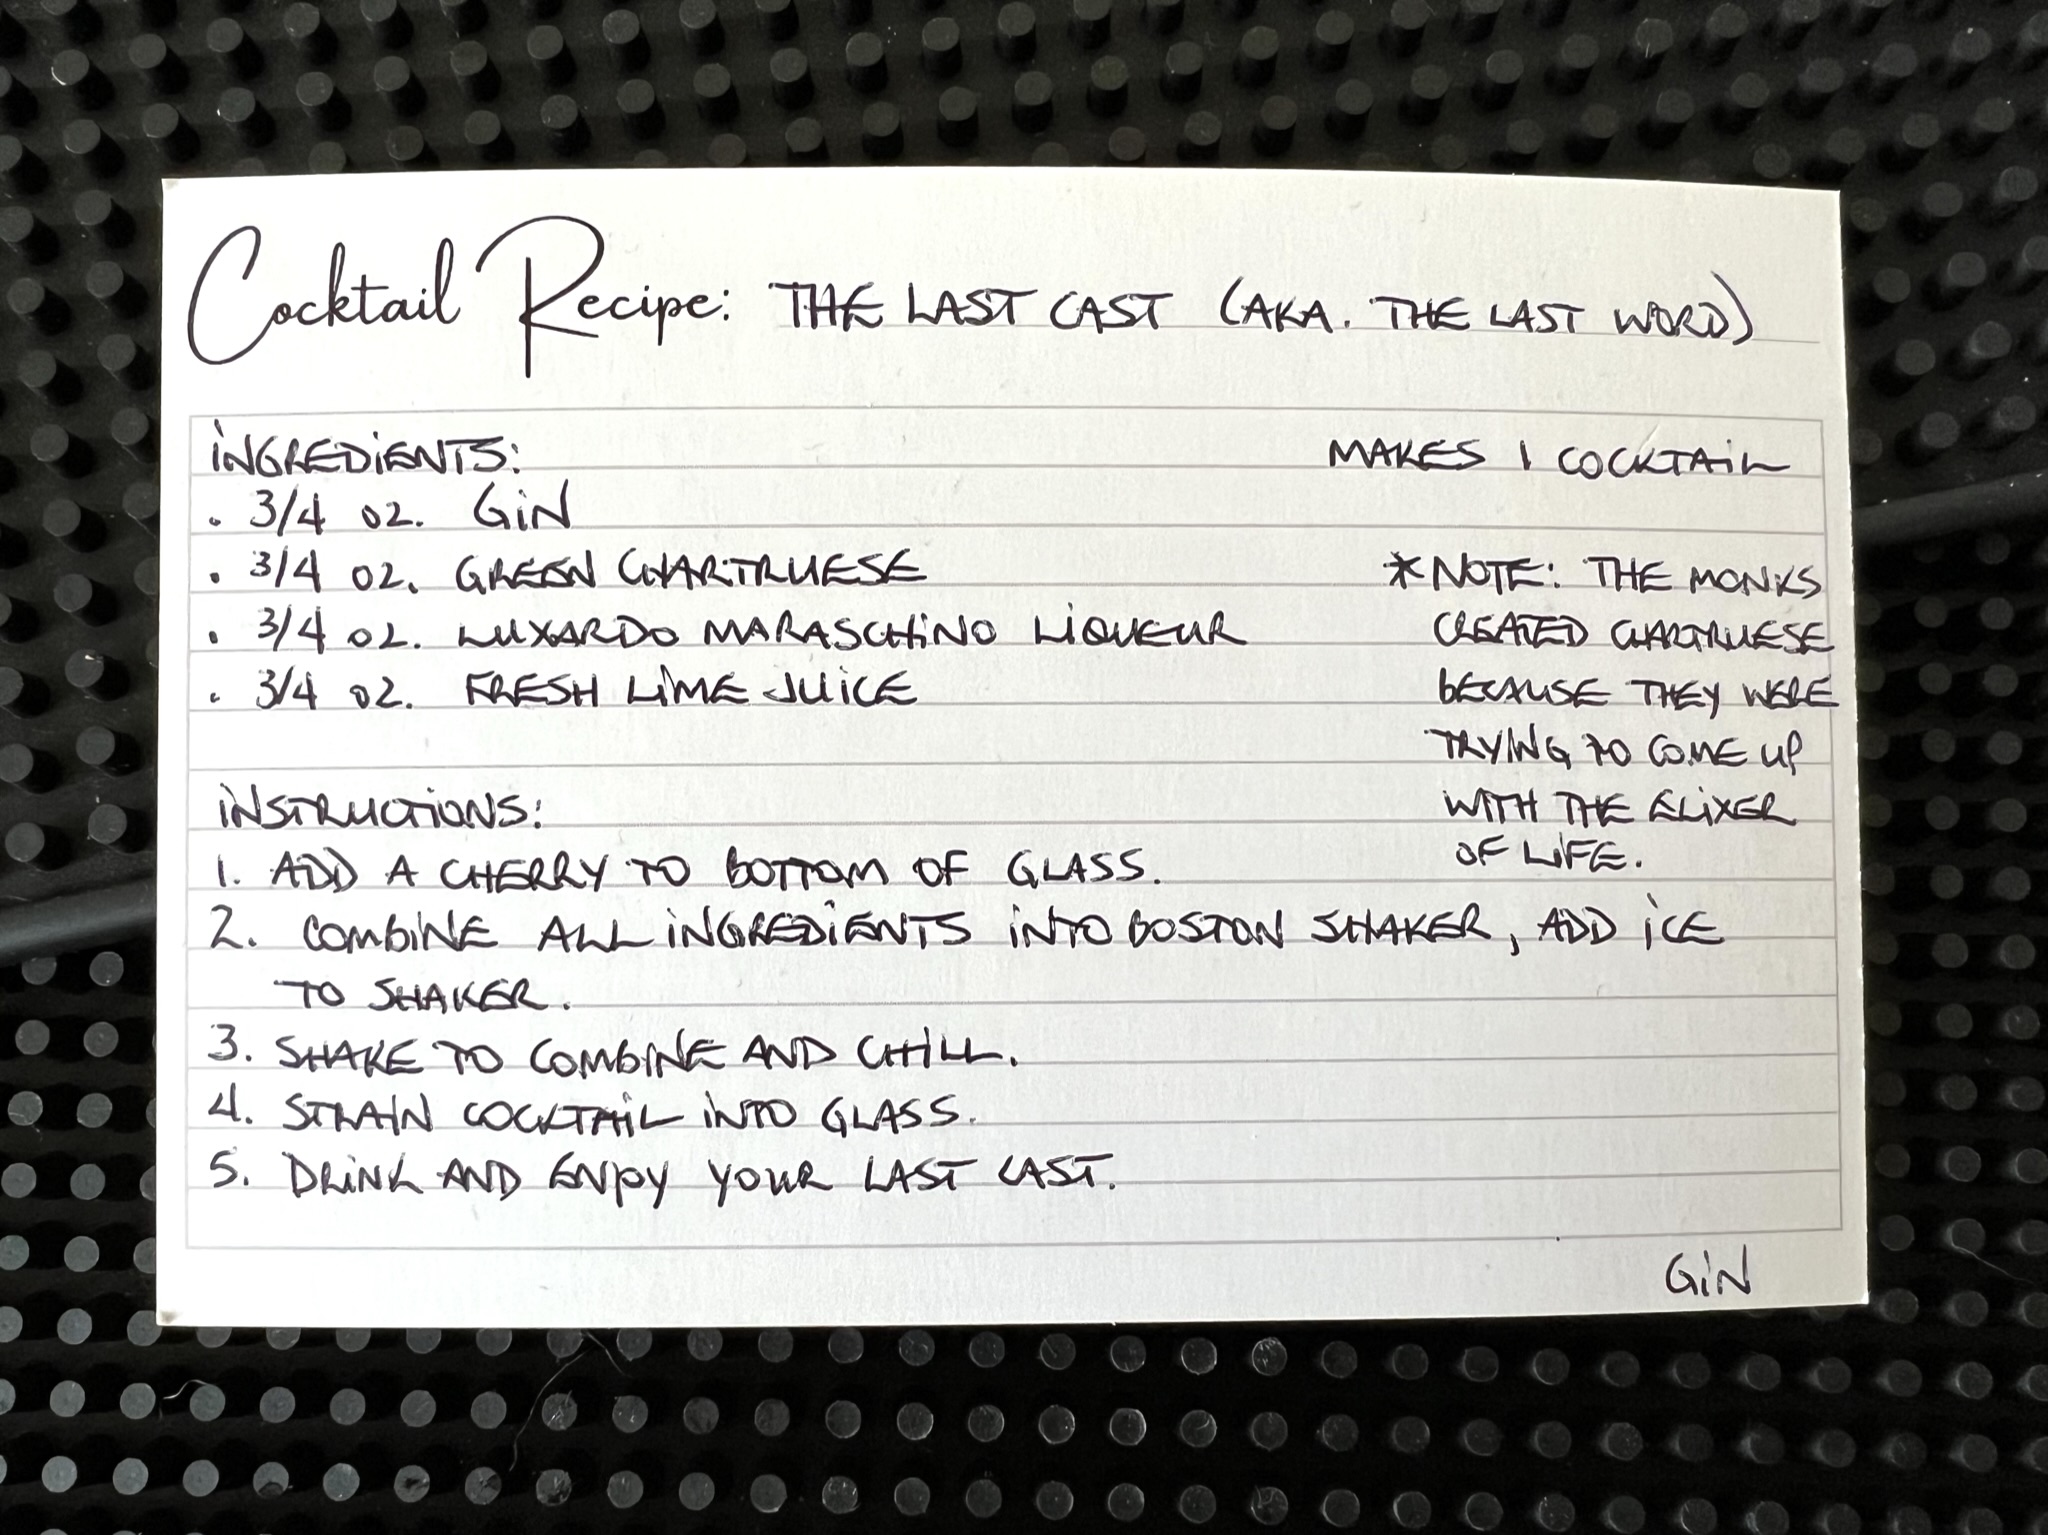 Cocktail Recipe: THE LAST CAST (AKA. THE LAST WORD)
INGREDIENTS:
MAKES 1 COCKTAIL
. 3/4 OZ. GIN
. 3/4 OZ. GREEN CHARTRUESE
. 3/4 OZ. LUXARDO MARASCHINO LIQUEUR
. 3/4 OZ. FRESH LIME JUICE
*NOTE: THE MONKS
CREATED CHARTRUESE
BECAUSE THEY WERE
TRYING TO COME UP
WITH THE ELIXER
OF LIFE.
INSTRUCTIONS:
1. ADD A CHERRY TO BOTTOM OF GLASS.
2. COMBINE ALL INGREDIENTS INTO BOSTON SHAKER, ADD ICE
TO SHAKER.
3. SHAKE TO COMBINE AND CHILL.
4. STRAIN COCKTAIL INTO GLASS.
5. DRINK AND ENJOY YOUR LAST CAST.
GIN